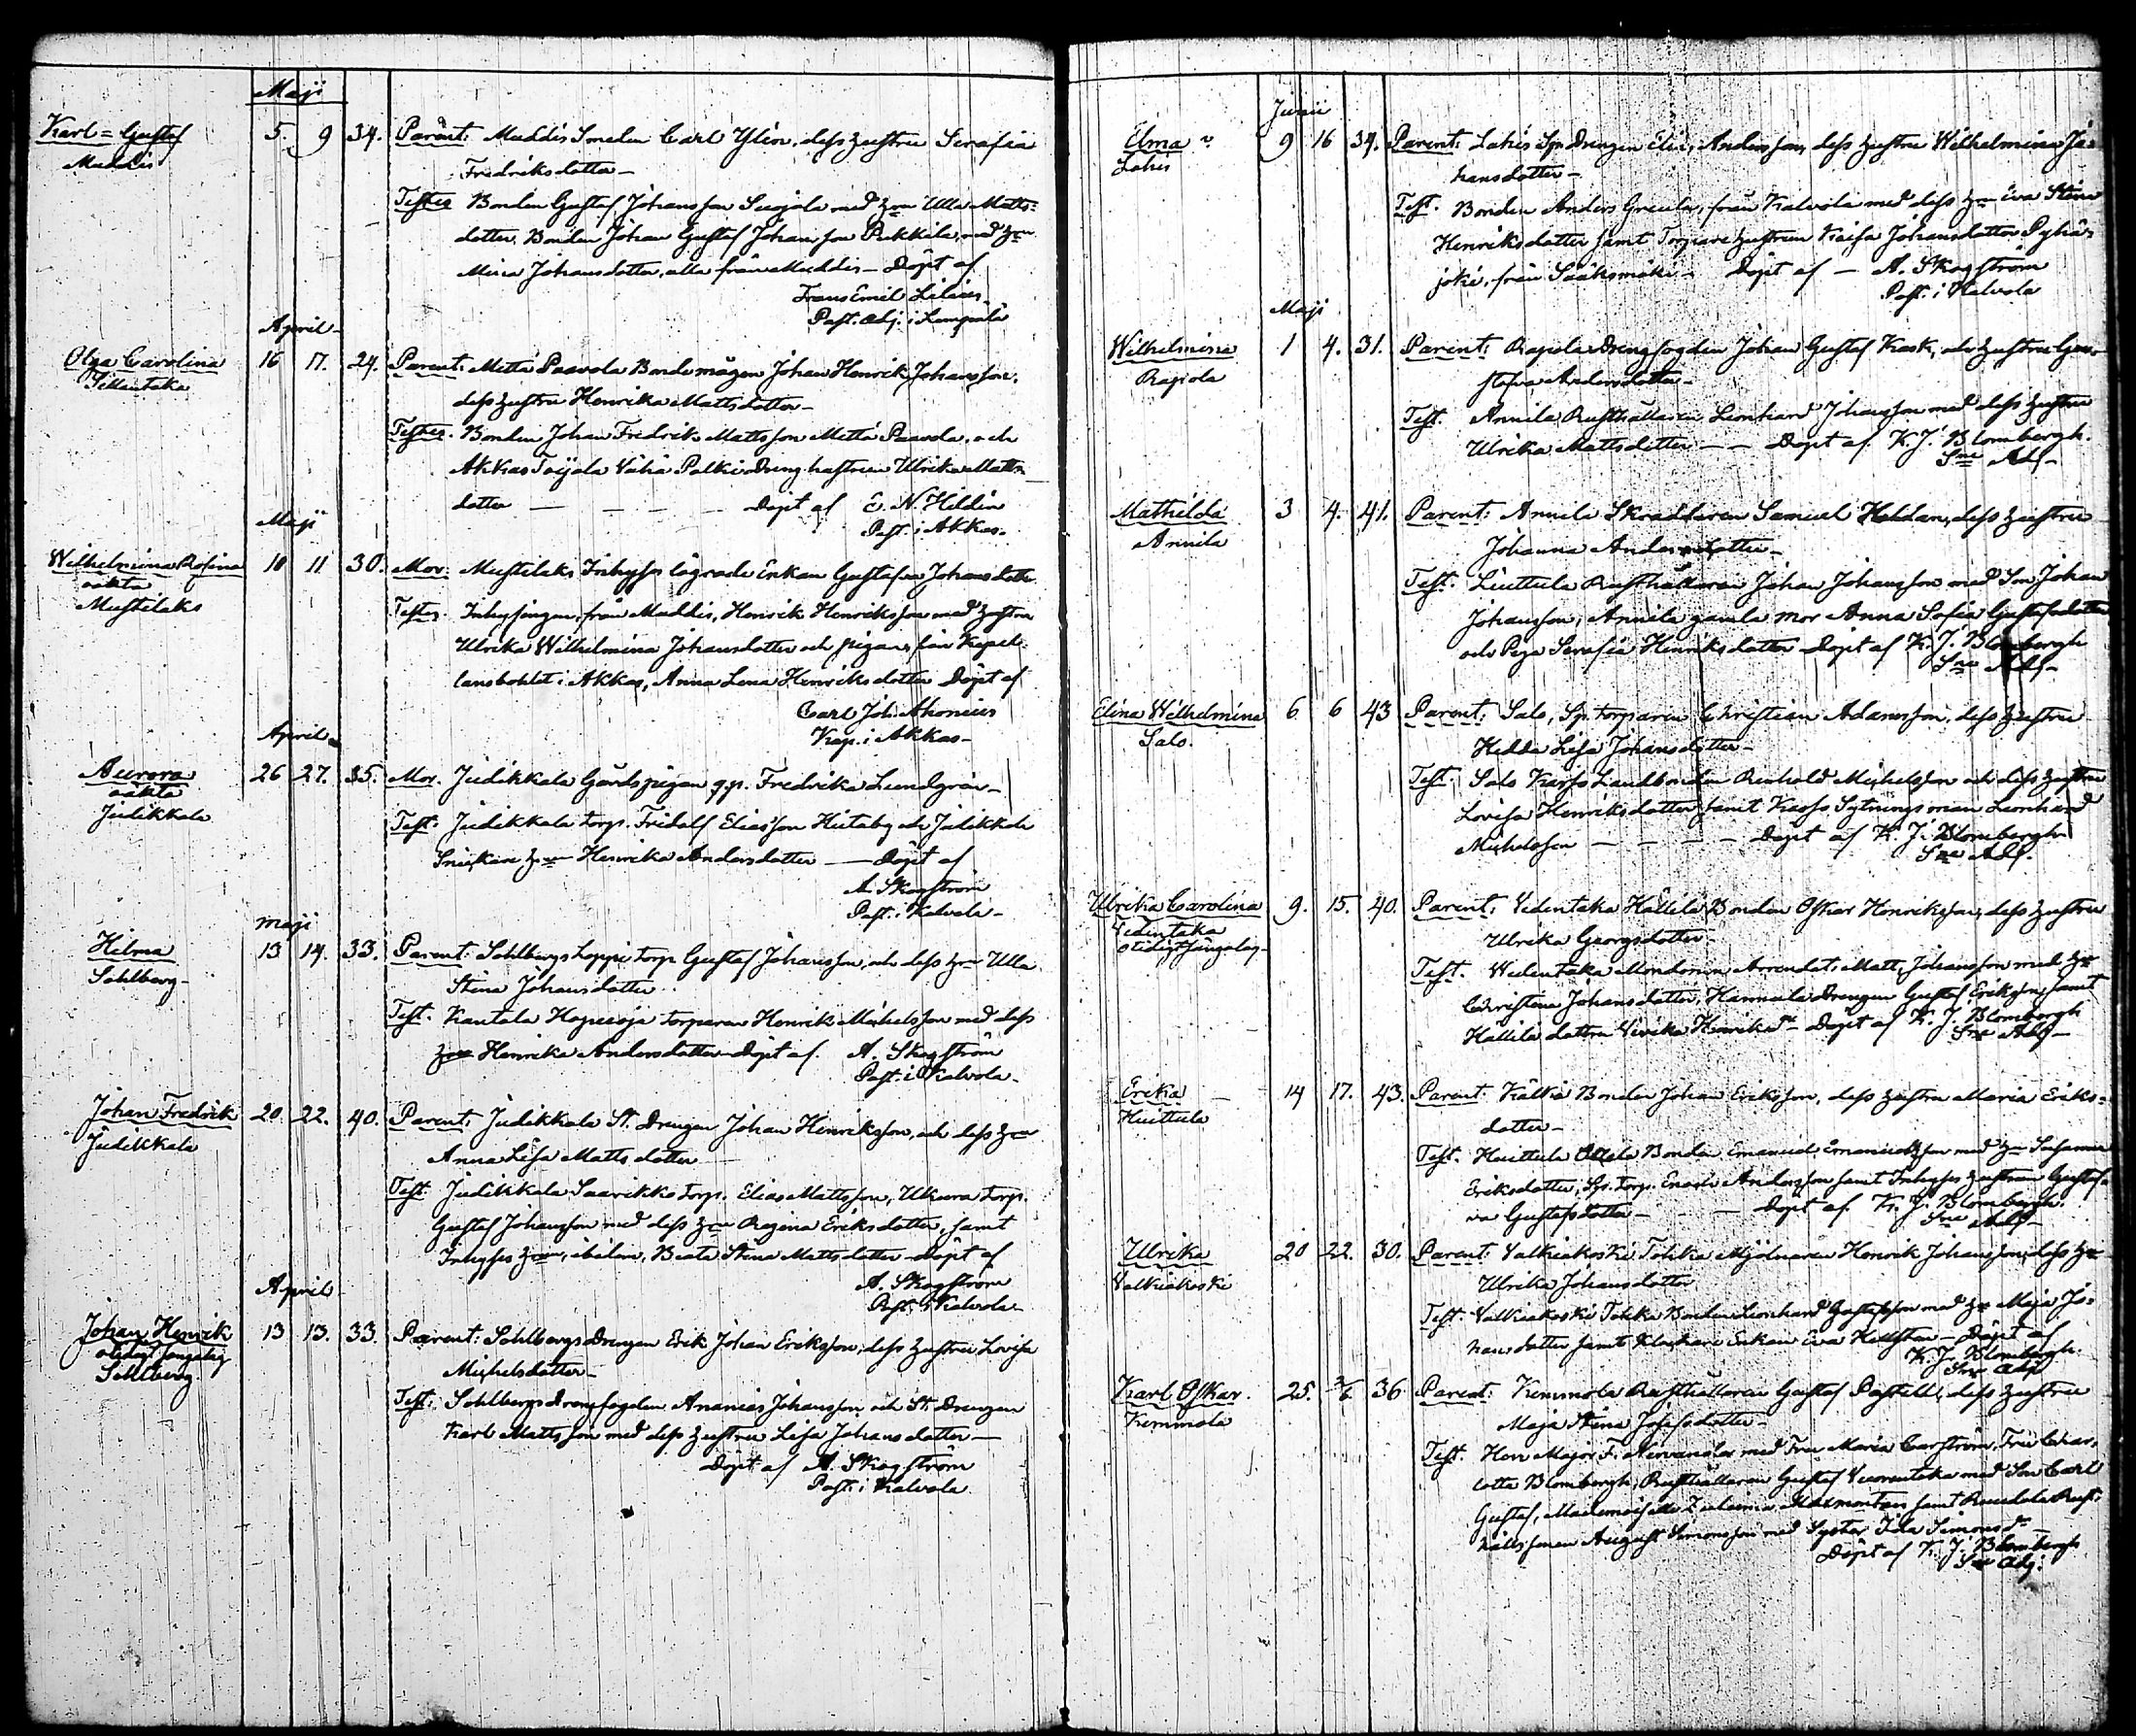 Maji
Karl=Gustaf 5. 9 34. Parent: Muddis Smeden Carl Ylén, dess hustru Serafia
Muddis Fredriksdotter—
Testes Bonden Gustaf Johansson Suojala med hun Ulla Matts=
dotter. Bonden Johan Gustaf Johansson Pukkila, med hun
Mina Johansdotter, alla från Muddis— Döpt af
Frans Emil Lilius
Past. adj. i Lempälä
April
Olga Carolina 16 17. 24. Parent: Mettä Paavola Bondemågen Johan Henrik Johansson,
dess hustru Henrika Mattsdotter—
Testes. Bonden Johan Fredrik Mattsson Mettä Paavola, och
Akkas Toijala Vähä Palki Dreng hustrun Ulrika Matts
dotter — — — — Döpt af E. N. Hildén
Past. i Akkas.
Maji
Wilhelmina Rosina 10 11 30. Mor: Mustilaks Inhyses lägrade Enkan Gustafva Johansdotter
oäkta
Mustilaks Testes Inhysingen, från Muddis, Henrik Henriksson med hustru
Ulrika Wilhelmina Johansdotter och pigan, från Kapel-
lansbohlet i Akkas, Anna Lena Henriksdotter Döpt af
Carl Joh. Ahonius
Kap. i Akkas—
April
Aurora 26 27. 35. Mor. Judikkala Gårdspigan q.p. Fredrika Lundgrén—
oäkta
Judikkala Test: Judikkala torp. Fridolf Eliasson Hutaby och Judikkala
Snickare hun Henrika Andersdotter — Döpt af
A. Skogström
Past. i Kalvola—
Maji
Hilma 13 14. 33. Parent: Sohlbergs Loppi torp Gustaf Johansson, och dess hun Ulla
Sohlberg— Stina Johansdotter
Test. Kantala Hopeoja torparen Henrik Michelsson med dess
hun Henrika Andersdotter Döpt af. A. Skogström
Past. i Kalvola—
Johan Fredrik 20. 22. 40. Parent: Judikkala St. Drengen Johan Henriksson, och dess hun
Judikkala Anna Lisa Mattsdotter
Test: Judikkala Saarikko torp. Elias Mattsson, Ukura torp.
Gustaf Johansson med dess hun Regina Eriksdotter, samt
Inhyses hun, ibidm, Beata Stina Mattsdotter Döpt af
A. Skogström
Past. i Kalvola—
April
Johan Henrik 13 13. 33. Parent: Sohlbergs Drengen Erik Johan Eriksson, dess hustru Lovisa
Sohlberg. Michelsdotter—
Test: Sohlbergs drengfogden Ananias Johansson och St. Drengen
Karl Mattsson med dess hustru Lisa Johansdotter—
Döpt af A. Skogström
Past. i Kalvola
Junii
Elma 9 16 34. Parent: Lahis Spr Drengen Elis Andersson, dess hustru Wilhelmina Jo=
Lahis hansdotter—
Test. Bonden Anders Greula, från Kalvola med dess hun Eva Stina
Henriksdotter samt Torpare hustrun Kaisa Johansdotter Pyhä=
joki, från Sääksmäki— Döpt af — A. Skogström
Past. i Kalvola
Maji
Wilhelmina 1 4. 31. Parent: Rapola Drengfogden Johan Gustaf Kask, och hustru Gu-
Rapola stafva Andersdotter—
Test. Annila Rusthållaren Leonhard Johansson med dess hustru
Ulrika Mattsdotter — — Döpt af K. J. Blombergh.
Sne Adj—
Mathilda 3 4. 41. Parent: Annila Skräddaren Samuel Heldan, dess hustru
Annila Johanna Andersdotter—
Test: Liuttula Rusthållaren Johan Johansson med Son Johan
Johansson, Annila gamla mor Anna Sofia Gustafsdotter
och Piga Serafia Henriksdotter Döpt af K. J. Blombergh
Sne Adj—
Elina Wilhelmina 6 6 43 Parent: Salo, Sp. torparen Christian Adamsson, dess hustru
Salo. Hedda Lisa Johansdotter—
Test: Salo Landbonden Reinhold Michelsson och dess hustru
Lovisa Henriksdotter samt Sytningsman Leonhard
Michelsson — — — — Döpt af K. J. Blombergh
Sne Adj.
Ulrika Carolina 9. 15. 40. Parent: Vedentaka Hällilä Bonden Oskar Henriksson, dess hustru
Vedentaka Ulrika Georgsdotter
Test. Wedentaka Arrendat. Matts Johansson med hu
Christina Johansdotter, Hannula Drengen Gustaf Eriksson, samt
Hällilä dottern Vivika Henriksdr— Döpt af K. J. Blombergh
Sne Adj—
Erika 14 17. 43. Parent: Kälkiä Bonden Johan Eriksson, dess hustru Maria Eriks=
Huittula dotter—
Test. Huittula Ollola Bonden Emanuel Emanuelsson med hu Susanna
Eriksdotter, Sp. torp. Andersson samt Inhyses hustrun Gustaf-
va Gustafsdotter — — Döpt af K. J. Blombergh.
Sne Adj—
Ulrika 20 22. 30. Parent: Valkiakoski Tohka Mjölnaren Henrik Johansson, dess hu
Valkiakoski Ulrika Johansdotter
Test: Valkiakoski Tohka Bonden Leonhard Gustafsson med hu Maja Jo=
hansdotter samt Klockare Enkan Eva Hellstén— Döpt af
K. J. Blombergh.
Sne Adj
Karl Oskar. 25. 2/6 36 Parent: Kemmola Rusthållaren Gustaf Pastell, dess hustru
Kemmola Maja Stina Josefsdotter—
Test. Herr Major F. Nervander med Fru Maria Carström, Fru Char-
lotta Blombergh, Rusthållaren Gustaf Vuorentaka med Son Carl
Gustaf, Mademoiselle samt Rust-
hållssonen August Simonsson med Syster Ida Simonsdr
Döpt af K. J. Blombergh
Sne Adj.